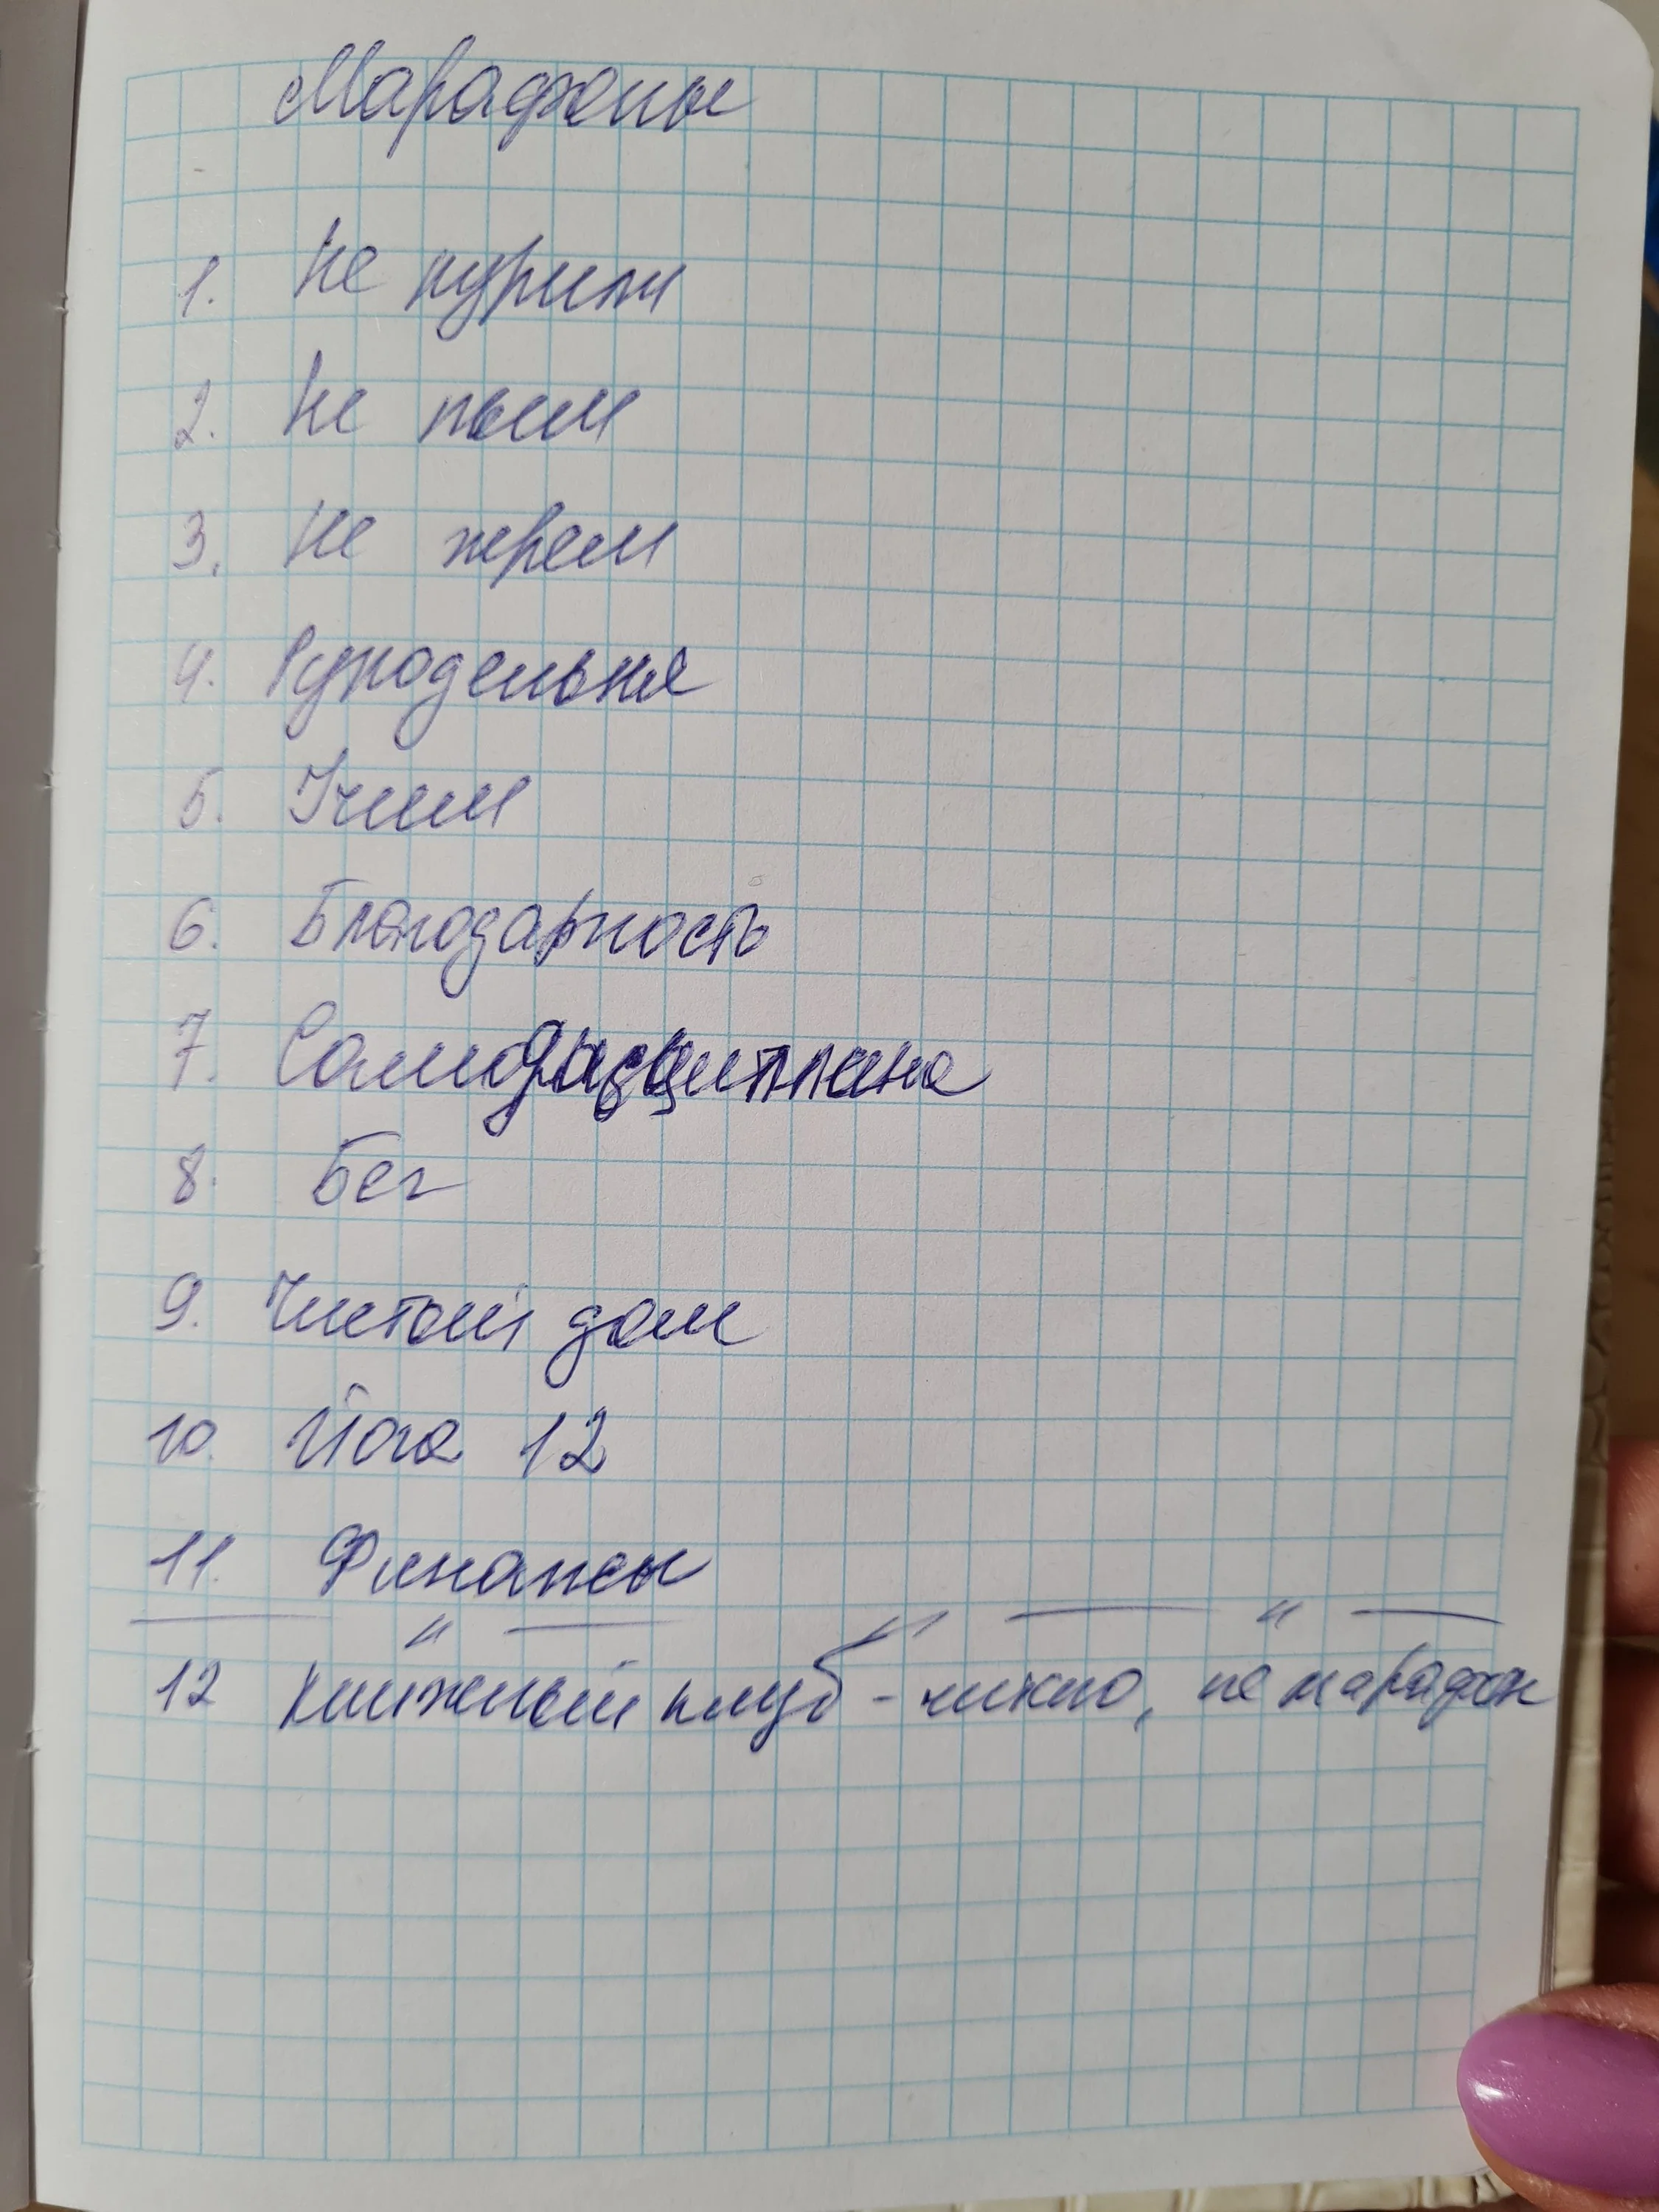 Марафоны
1. Не курим
2. Не пьем
3. Не жрем
4. Рукодельня
5. Учим
6. Благодарность
7. Самодисциплина
8. Бег
9. Чистый дом
10. Йога 12
11. Финансы
— " — " — " —
12 Книжный клуб - чисто, не марафон